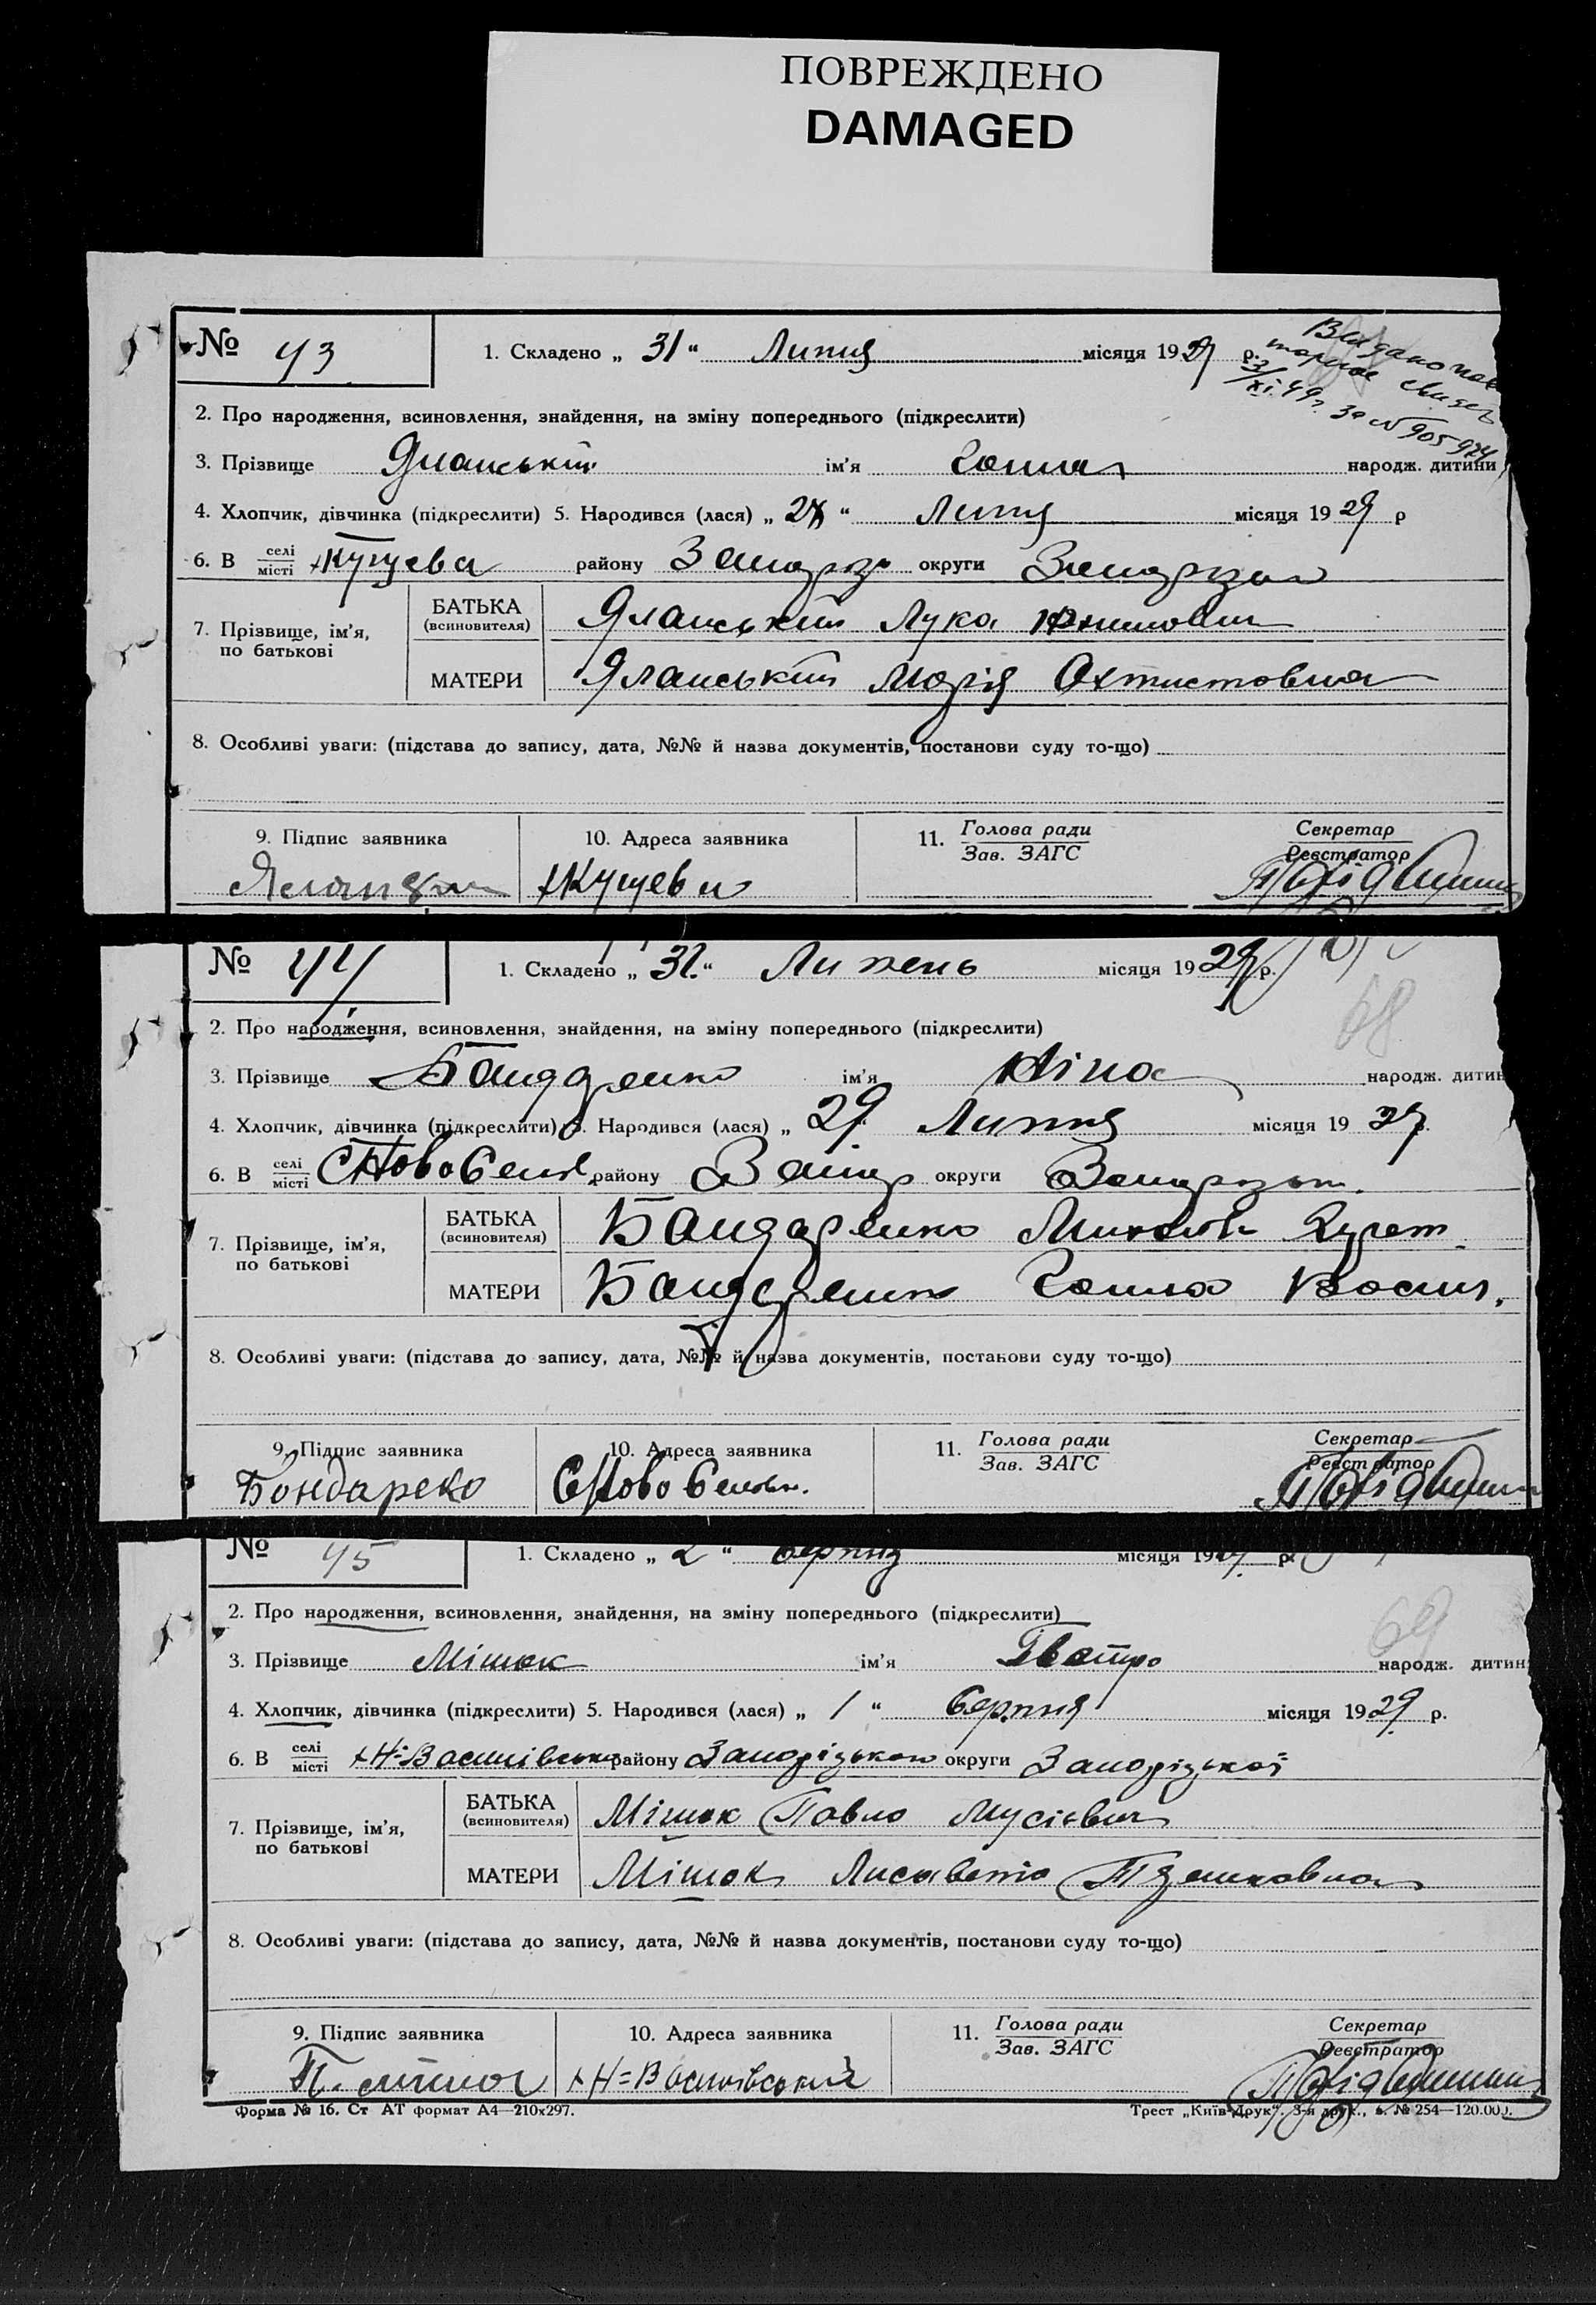 ПОВРЕЖДЕНО
DAMAGED
№ 43 1. Складено „ 31 “ Липня місяця 1929 р.
Видано пов
торное свидет
3/XI.49г. за № 905924
2. Про народження, всиновлення, знайдення, на зміну попереднього (підкреслити)
3. Прізвище ім'я Ганна народж. дитини
4. Хлопчик, дівчинка (підкреслити) 5. Народився (лася) „ “ Липня місяця 1929 р
6. В селі/місті району Запороз округи
7. Прізвище, ім'я, по батькові
БАТЬКА (всиновителя) Яланський Лука
МАТЕРИ Яланський Марія
8. Особливі уваги: (підстава до запису, дата, №№ й назва документів, постанови суду то-що)
9. Підпис заявника 10. Адреса заявника 11. Голова ради/Зав. ЗАГС Секретар/Реєстратор
№ 44 1. Складено „ 31 “ Липень місяця 1929 р.
68
2. Про народження, всиновлення, знайдення, на зміну попереднього (підкреслити)
3. Прізвище Бандаренко ім'я Ніна народж. дитин
4. Хлопчик, дівчинка (підкреслити) 5. Народився (лася) „ 29 “ Липня місяця 1929 р.
6. В селі/місті району Запор округи
7. Прізвище, ім'я, по батькові
БАТЬКА (всиновителя) Бандаренко Микола
МАТЕРИ Бандаренко Ганна Васил.
8. Особливі уваги: (підстава до запису, дата, №№ й назва документів, постанови суду то-що)
9. Підпис заявника 10. Адреса заявника 11. Голова ради/Зав. ЗАГС Секретар/Реєстратор
Бондареко
№ 45 1. Складено „ 2 “ Серпня місяця 1929 р.
69
2. Про народження, всиновлення, знайдення, на зміну попереднього (підкреслити)
3. Прізвище Мішок ім'я народж. дитин
4. Хлопчик, дівчинка (підкреслити) 5. Народився (лася) „ 1 “ Серпня місяця 1929 р.
6. В селі/місті району Запорізького округи Запорізької
7. Прізвище, ім'я, по батькові
БАТЬКА (всиновителя) Мішок Павло Мусієвич
МАТЕРИ Мішок Лисавета
8. Особливі уваги: (підстава до запису, дата, №№ й назва документів, постанови суду то-що)
9. Підпис заявника 10. Адреса заявника 11. Голова ради/Зав. ЗАГС Секретар/Реєстратор
Форма № 16. Ст АТ формат А4—210х297. Трест „Київ-Друк“. 3-я друк., з. № 254—120.000.